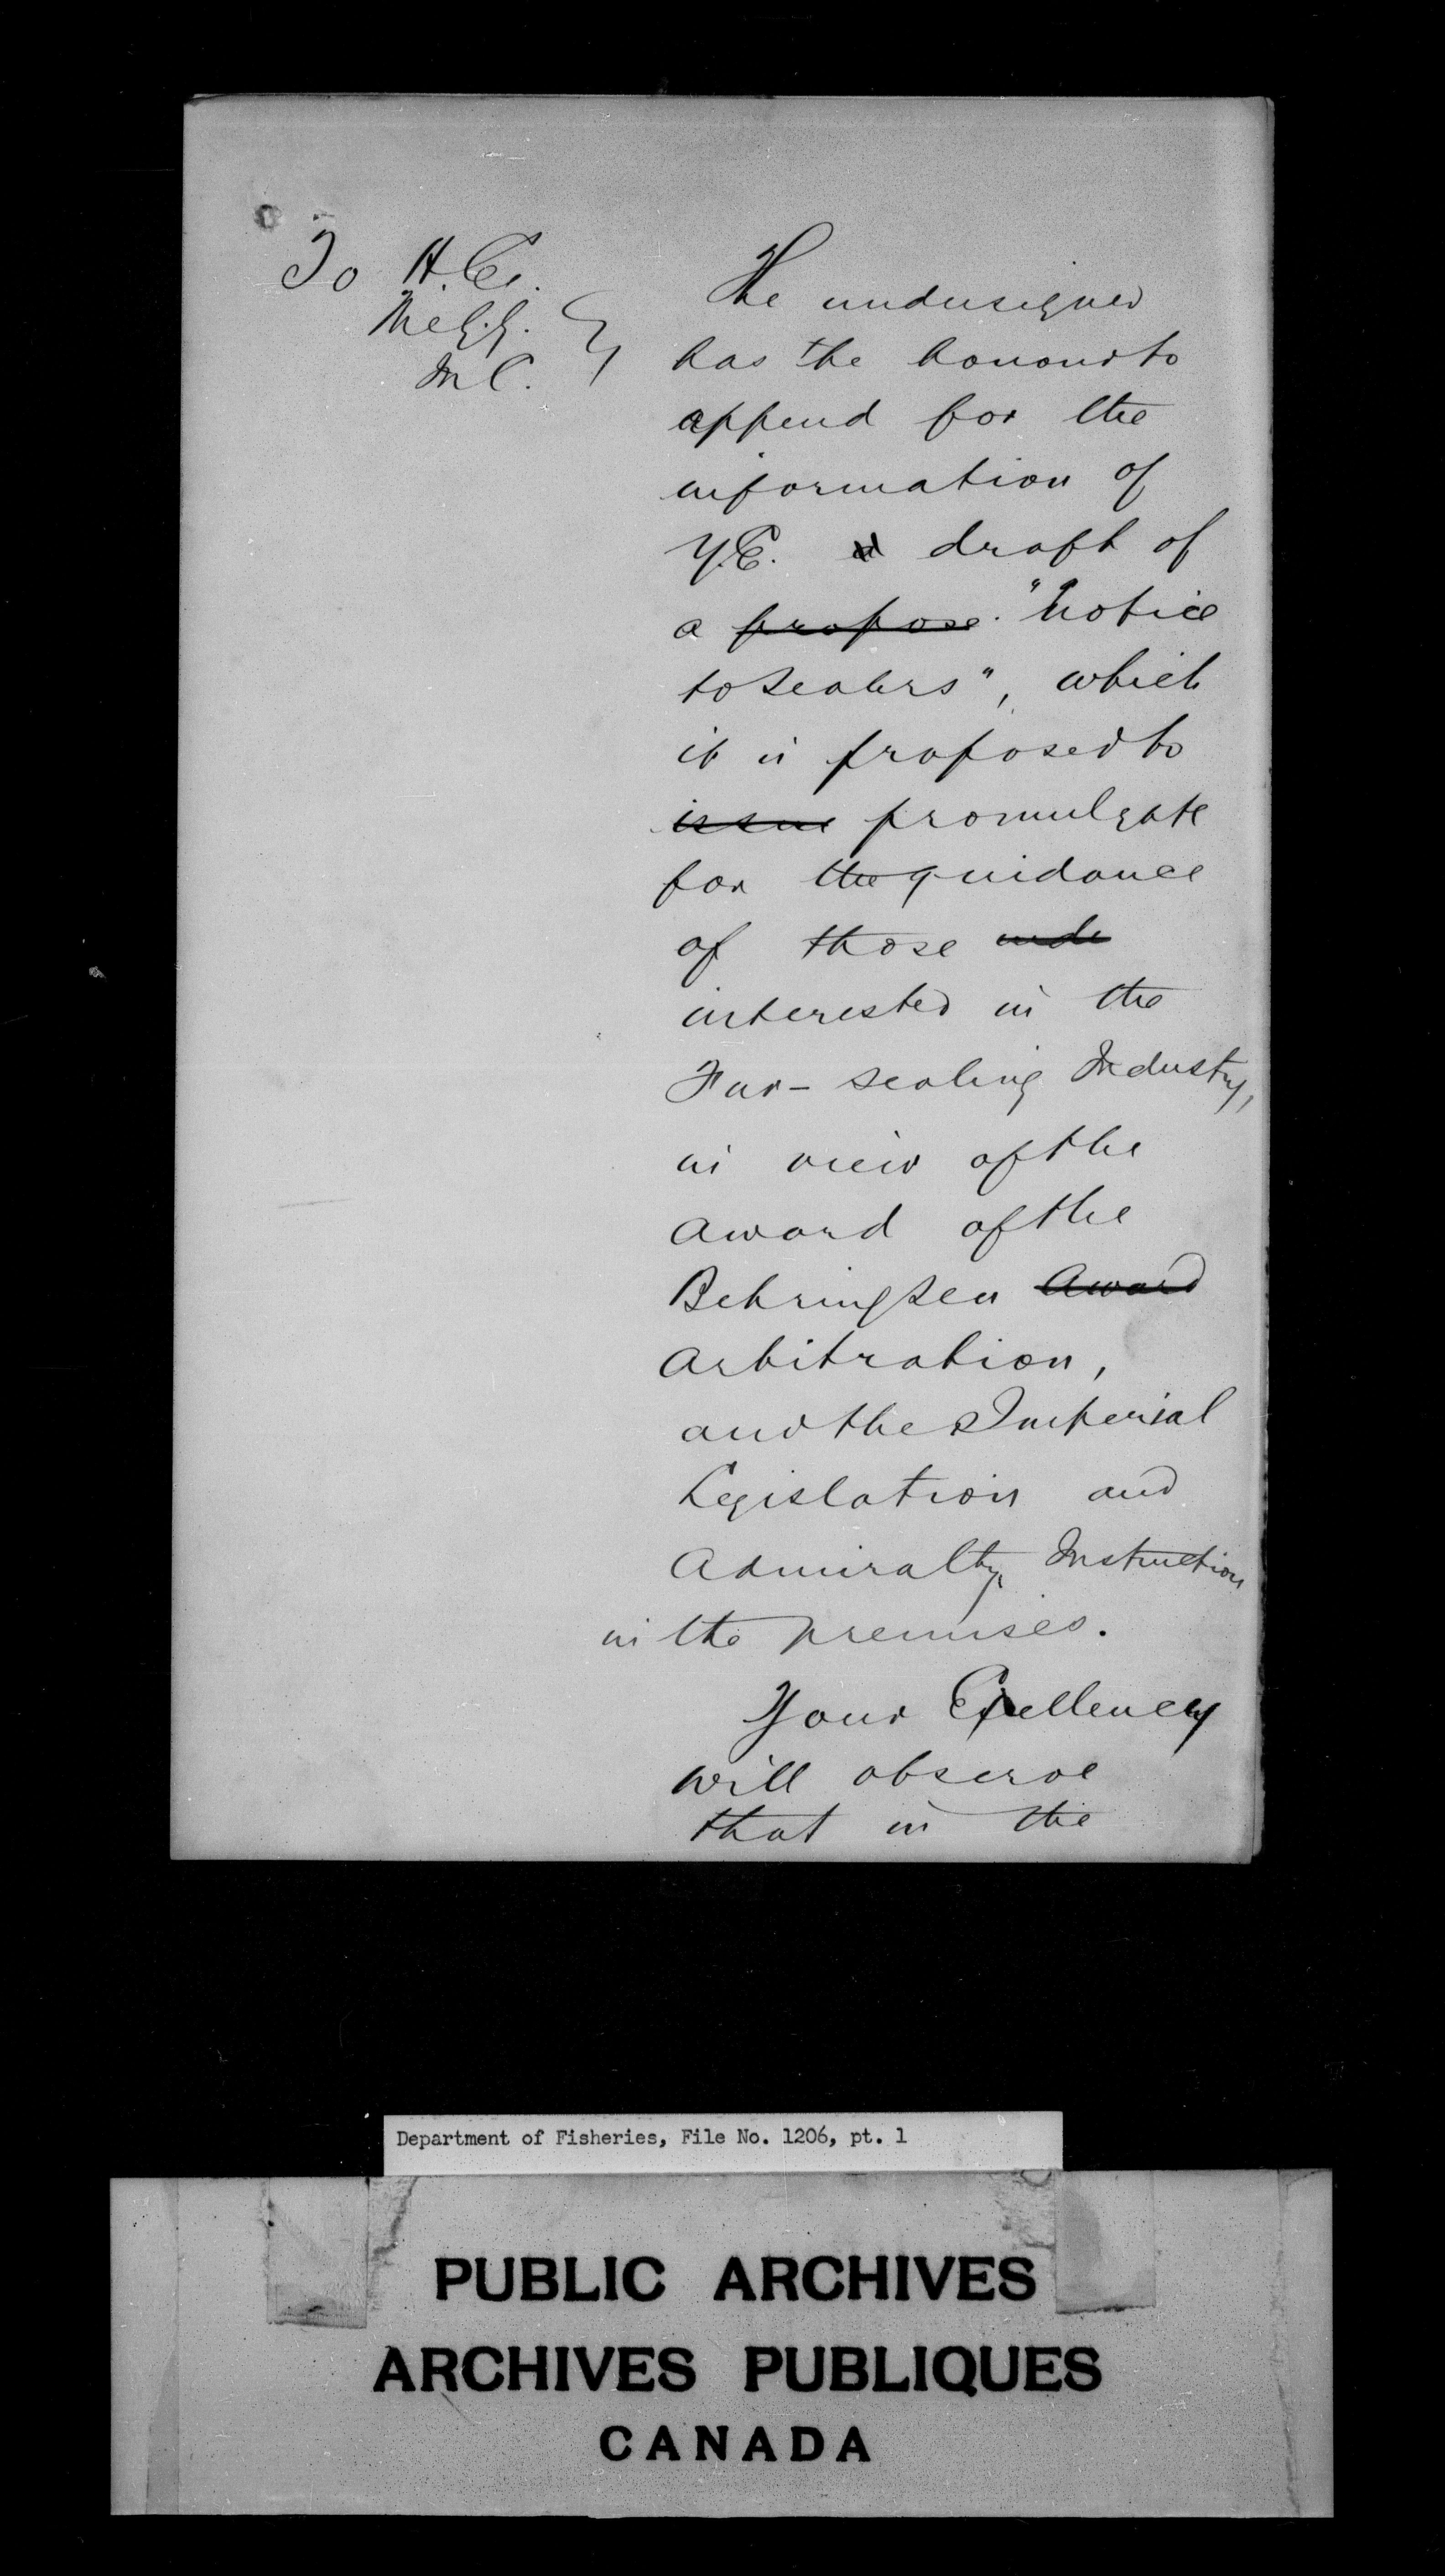 To H.E.
The G.G.
in C.
The undersigned
has the honour to
append for the
information of
Y.E. a draft of
a propose "Notice
to Sealers", which
it is proposed to
issue promulgate
for the guidance
of those
interested in the
Fur-sealing Industry,
in view of the
Award of the
Behring Sea Award
Arbitration,
and the Imperial
Legislation and
Admiralty Instruction
in the premises.
Your Excellency
will observe
that in the
Department of Fisheries, File No. 1206, pt. 1
PUBLIC ARCHIVES
ARCHIVES PUBLIQUES
CANADA